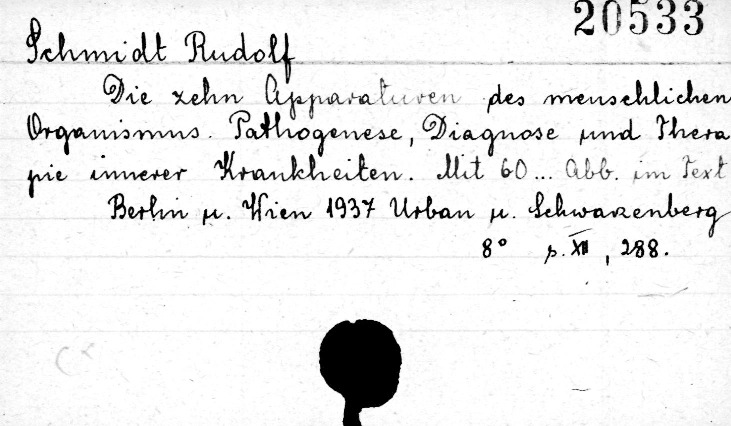 20533
Schmidt Rudolf
Die zehn Apparaturen des menschlichen
Organismus. Pathogenese, Diagnose und Thera
pie innerer Krankheiten. Mit 60... Abb. im Text
Berlin u. Wien 1937 Urban u. Schwarzenberg
8° p. XII, 288.